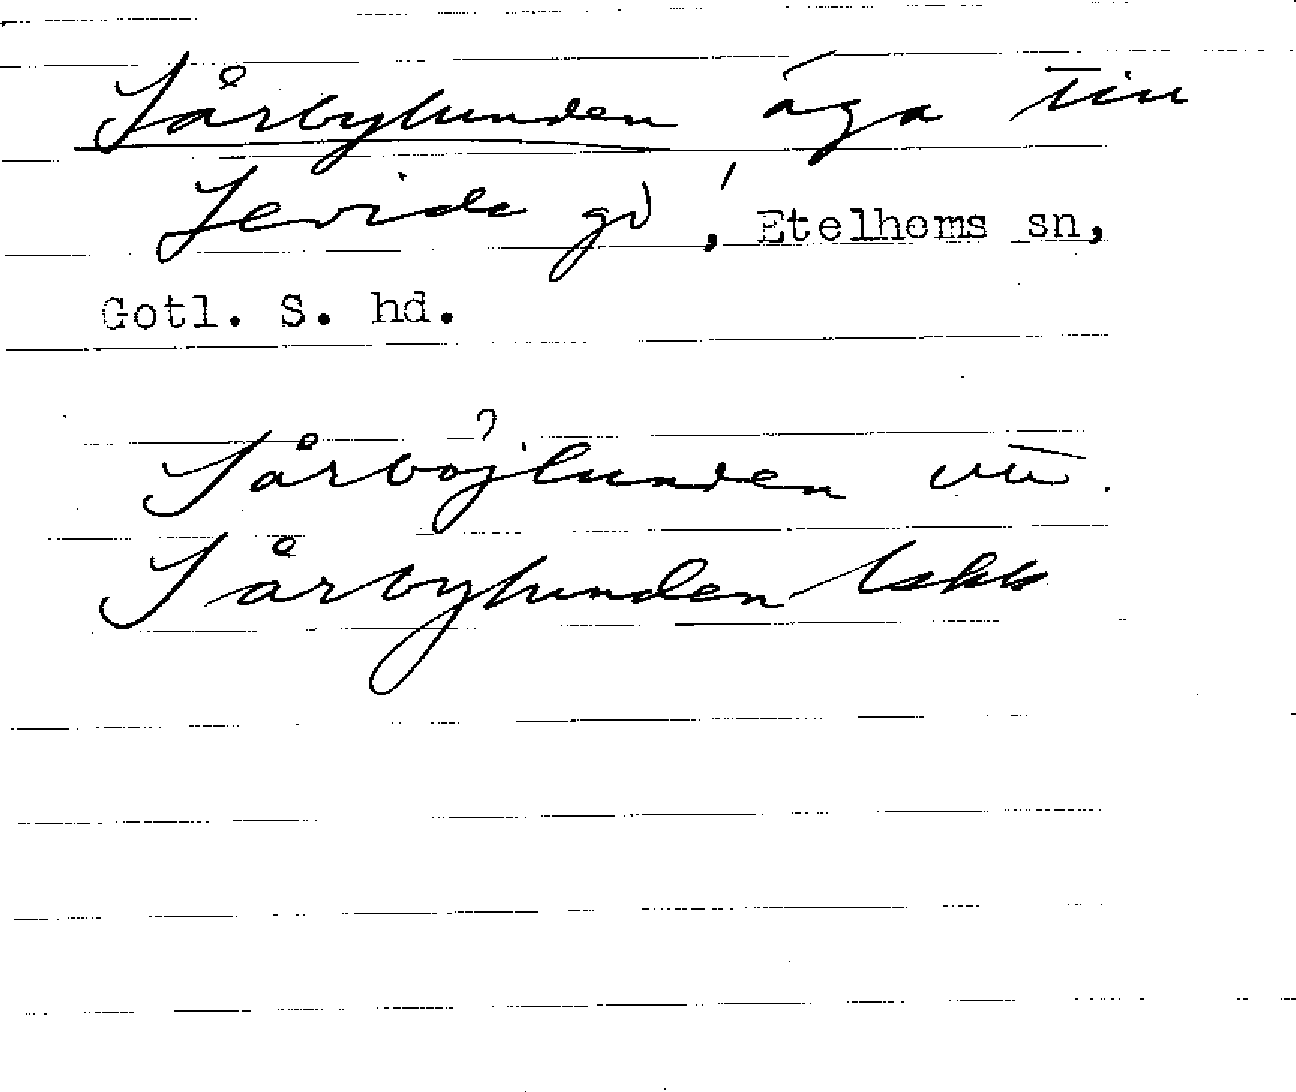 Sårbylunden äga till
Levide gd, Etelhems sn,
Gotl. S. hd.
Sårböjlunden
Sårbylunden